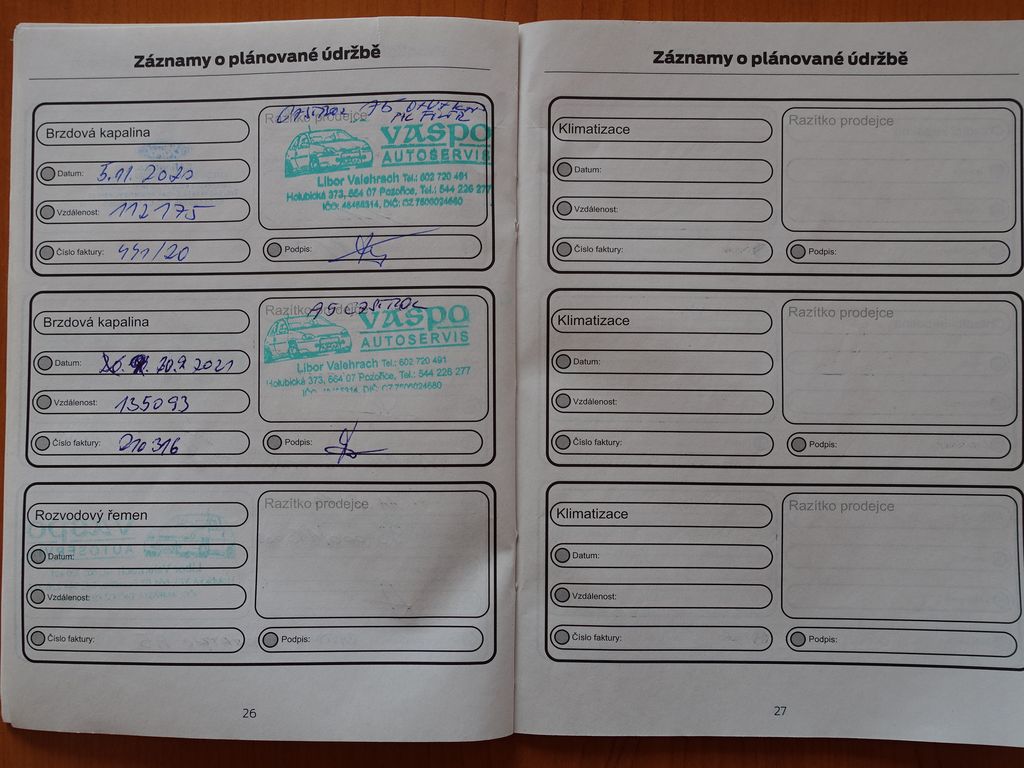 Záznamy o plánované údržbě
Brzdová kapalina
Datum: 5.11.2020
Vzdálenost: 112175
Číslo faktury: 441/20
Razítko prodejce
CASTROL A5
VASPO
AUTOSERVIS
Libor Valehrach Tel.: 602 720 491
Holubická 373, 664 07 Pozořice, Tel.: 544 226 277
Podpis:
Brzdová kapalina
Datum: 20.9.2021
Vzdálenost: 135093
Číslo faktury: 210316
Razítko prodejce
A5 CASTROL
VASPO
AUTOSERVIS
Libor Valehrach Tel.: 602 720 491
Holubická 373, 664 07 Pozořice, Tel.: 544 226 277
Podpis:
Rozvodový řemen
Datum:
Vzdálenost:
Číslo faktury:
Razítko prodejce
Podpis:
26
Záznamy o plánované údržbě
Klimatizace
Datum:
Vzdálenost:
Číslo faktury:
Razítko prodejce
Podpis:
Klimatizace
Datum:
Vzdálenost:
Číslo faktury:
Razítko prodejce
Podpis:
Klimatizace
Datum:
Vzdálenost:
Číslo faktury:
Razítko prodejce
Podpis:
27